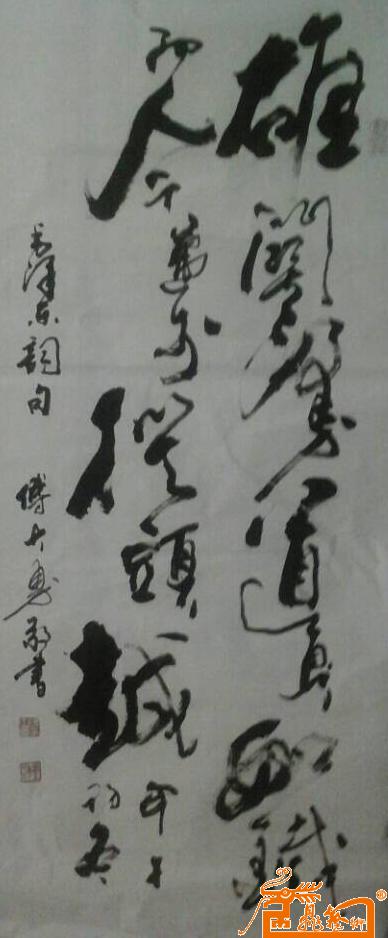 雄關漫道真如鐵
而今邁步從頭越
初冬
毛澤東詞句 傅大勇敬書